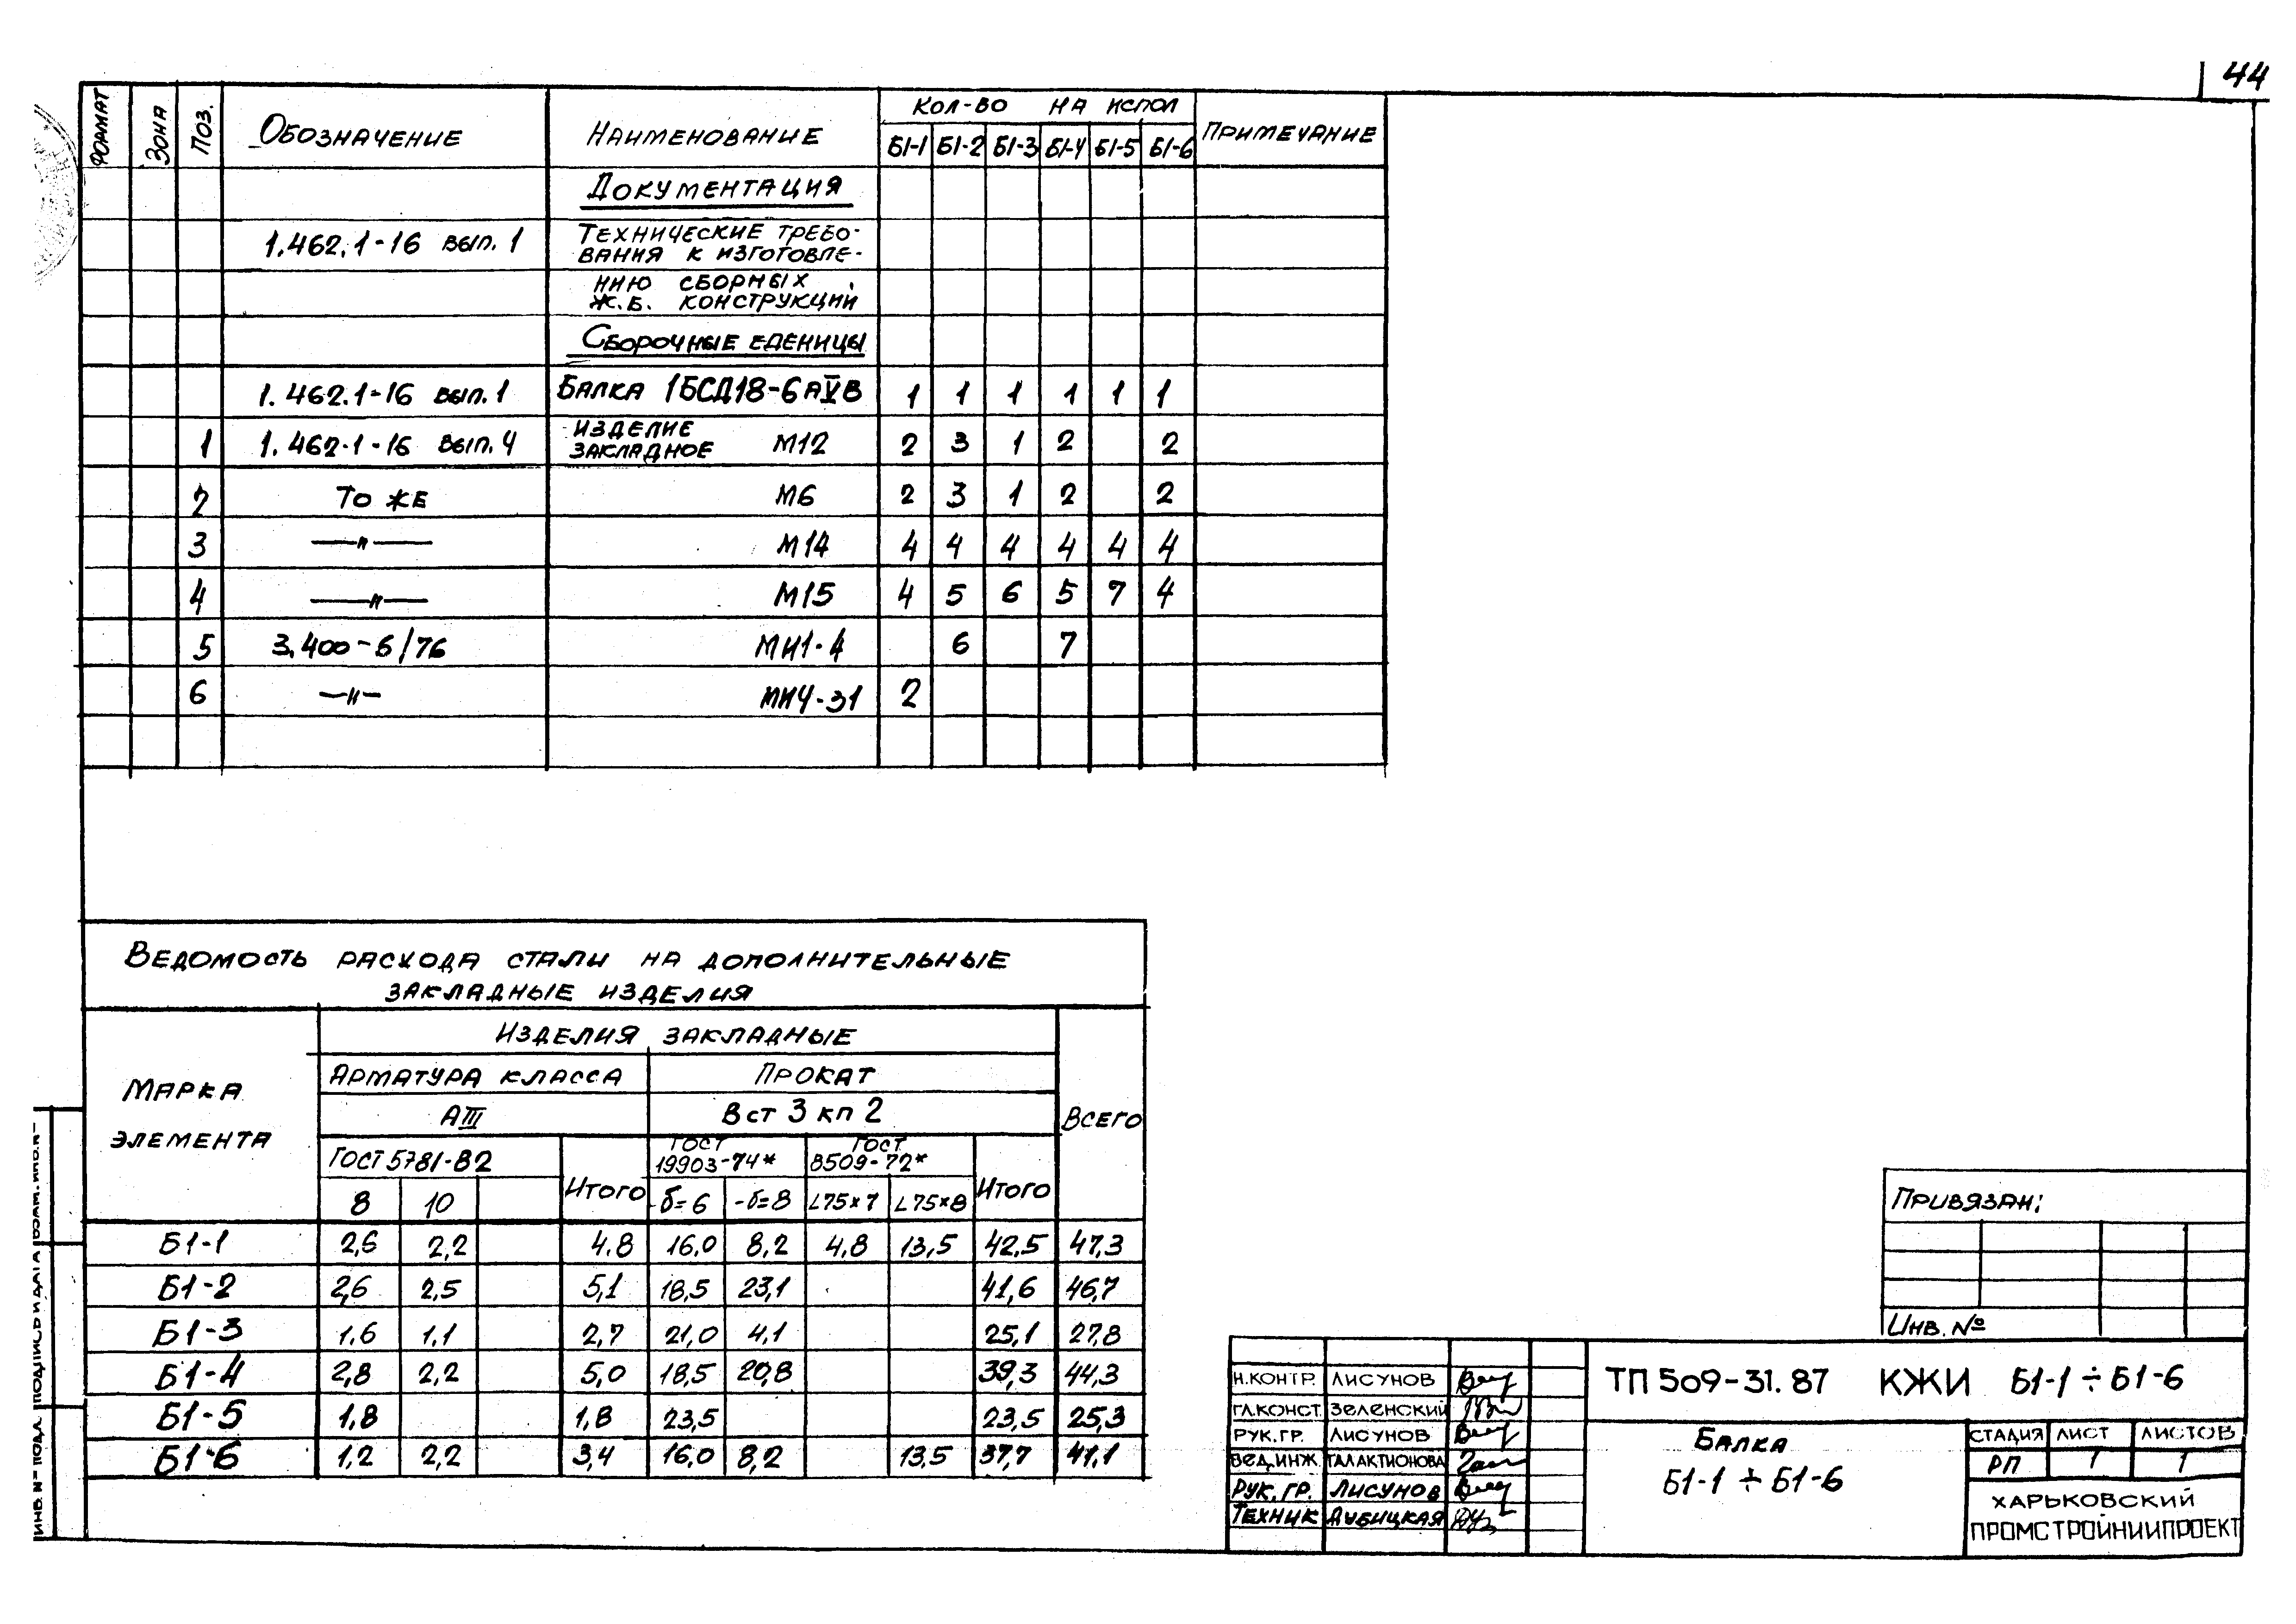 44
ФОРМАТ ЗОНА ПОЗ. ОБОЗНАЧЕНИЕ НАИМЕНОВАНИЕ КОЛ-ВО НА ИСПОЛ ПРИМЕЧАНИЕ
Б1-1 Б1-2 Б1-3 Б1-4 Б1-5 Б1-6
ДОКУМЕНТАЦИЯ
1.462.1-16 ВЫП. 1 ТЕХНИЧЕСКИЕ ТРЕБО-
ВАНИЯ К ИЗГОТОВЛЕ-
НИЮ СБОРНЫХ
Ж.Б. КОНСТРУКЦИЙ
СБОРОЧНЫЕ ЕДЕНИЦЫ
1.462.1-16 ВЫП. 1 БАЛКА 1БСД18-6АⅤВ 1 1 1 1 1 1
1 1.462.1-16 ВЫП. 4 ИЗДЕЛИЕ ЗАКЛАДНОЕ М12 2 3 1 2 2
2 ТО ЖЕ М6 2 3 1 2 2
3 —"— М14 4 4 4 4 4 4
4 —"— М15 4 5 6 5 7 4
5 3.400-6/76 МИ1-4 6 7
6 —"— МИ4-31 2
ВЕДОМОСТЬ РАСХОДА СТАЛИ НА ДОПОЛНИТЕЛЬНЫЕ
ЗАКЛАДНЫЕ ИЗДЕЛИЯ
МАРКА ЭЛЕМЕНТА ИЗДЕЛИЯ ЗАКЛАДНЫЕ ВСЕГО
АРМАТУРА КЛАССА ПРОКАТ
АⅢ Вст 3 кп 2
ГОСТ 5781-82 ИТОГО ГОСТ 19903-74* ГОСТ 8509-72* ИТОГО
8 10 -δ=6 -δ=8 L75×7 L75×8
Б1-1 2,6 2,2 4.8 16,0 8,2 4,8 13,5 42,5 47,3
Б1-2 2,6 2,5 5,1 18,5 23,1 41,6 46,7
Б1-3 1.6 1.1 2,7 21,0 4,1 25,1 27,8
Б1-4 2,8 2,2 5,0 18,5 20,8 39,3 44,3
Б1-5 1,8 1,8 23,5 23,5 25,3
Б1-6 1,2 2,2 3,4 16,0 8,2 13,5 37,7 41,1
ПРИВЯЗАН:
ИНВ. №
Н.КОНТР. ЛИСУНОВ
ГЛ.КОНСТ. ЗЕЛЕНСКИЙ
РУК.ГР. ЛИСУНОВ
ВЕД.ИНЖ. ГАЛАКТИОНОВА
РУК.ГР. ЛИСУНОВ
ТЕХНИК ДУБИЦКАЯ
ТП 509-31.87 КЖИ Б1-1 ÷ Б1-6
БАЛКА
Б1-1 ÷ Б1-6
СТАДИЯ ЛИСТ ЛИСТОВ
РП 1 1
ХАРЬКОВСКИЙ
ПРОМСТРОЙНИИПРОЕКТ
ИНВ. № ПОДЛ. ПОДПИСЬ И ДАТА ВЗАМ. ИНВ. №